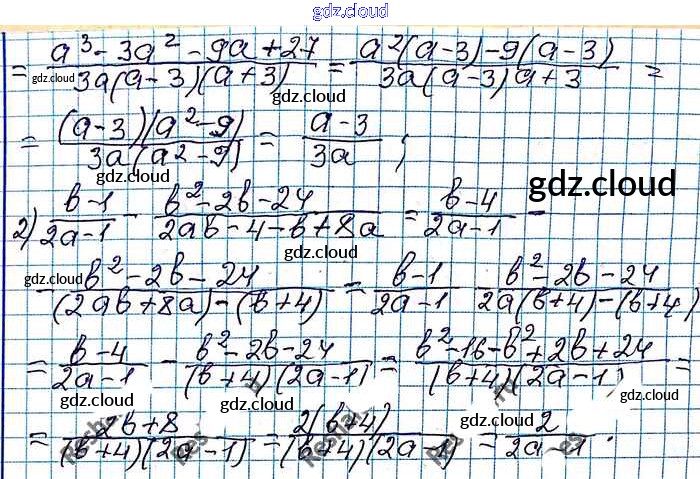 gdz.cloud
= (a³ - 3a² - 9a + 27)/(3a(a-3)(a+3)) = (a²(a-3) - 9(a-3))/(3a(a-3)a+3) =
gdz.cloud gdz.cloud gdz.cloud
= ((a-3)(a²-9))/(3a(a²-9)) = (a-3)/(3a);
gdz.cloud gdz.cloud
2) (b-1)/(2a-1) - (b²-2b-24)/(2ab-4-b+8a) = (b-4)/(2a-1) -
gdz.cloud gdz.cloud
- (b²-2b-24)/((2ab+8a)-(b+4)) = (b-1)/(2a-1) (b²-2b-24)/(2a(b+4)-(b+4))
= (b-4)/(2a-1) - (b²-2b-24)/((b+4)(2a-1)) = (b²-16-b²+2b+24)/((b+4)(2a-1)) =
gdz.cloud gdz.cloud gdz.cloud
= (2b+8)/((b+4)(2a-1)) = (2(b+4))/((b+4)(2a-1)) = 2/(2a-1).
gdz.cloud